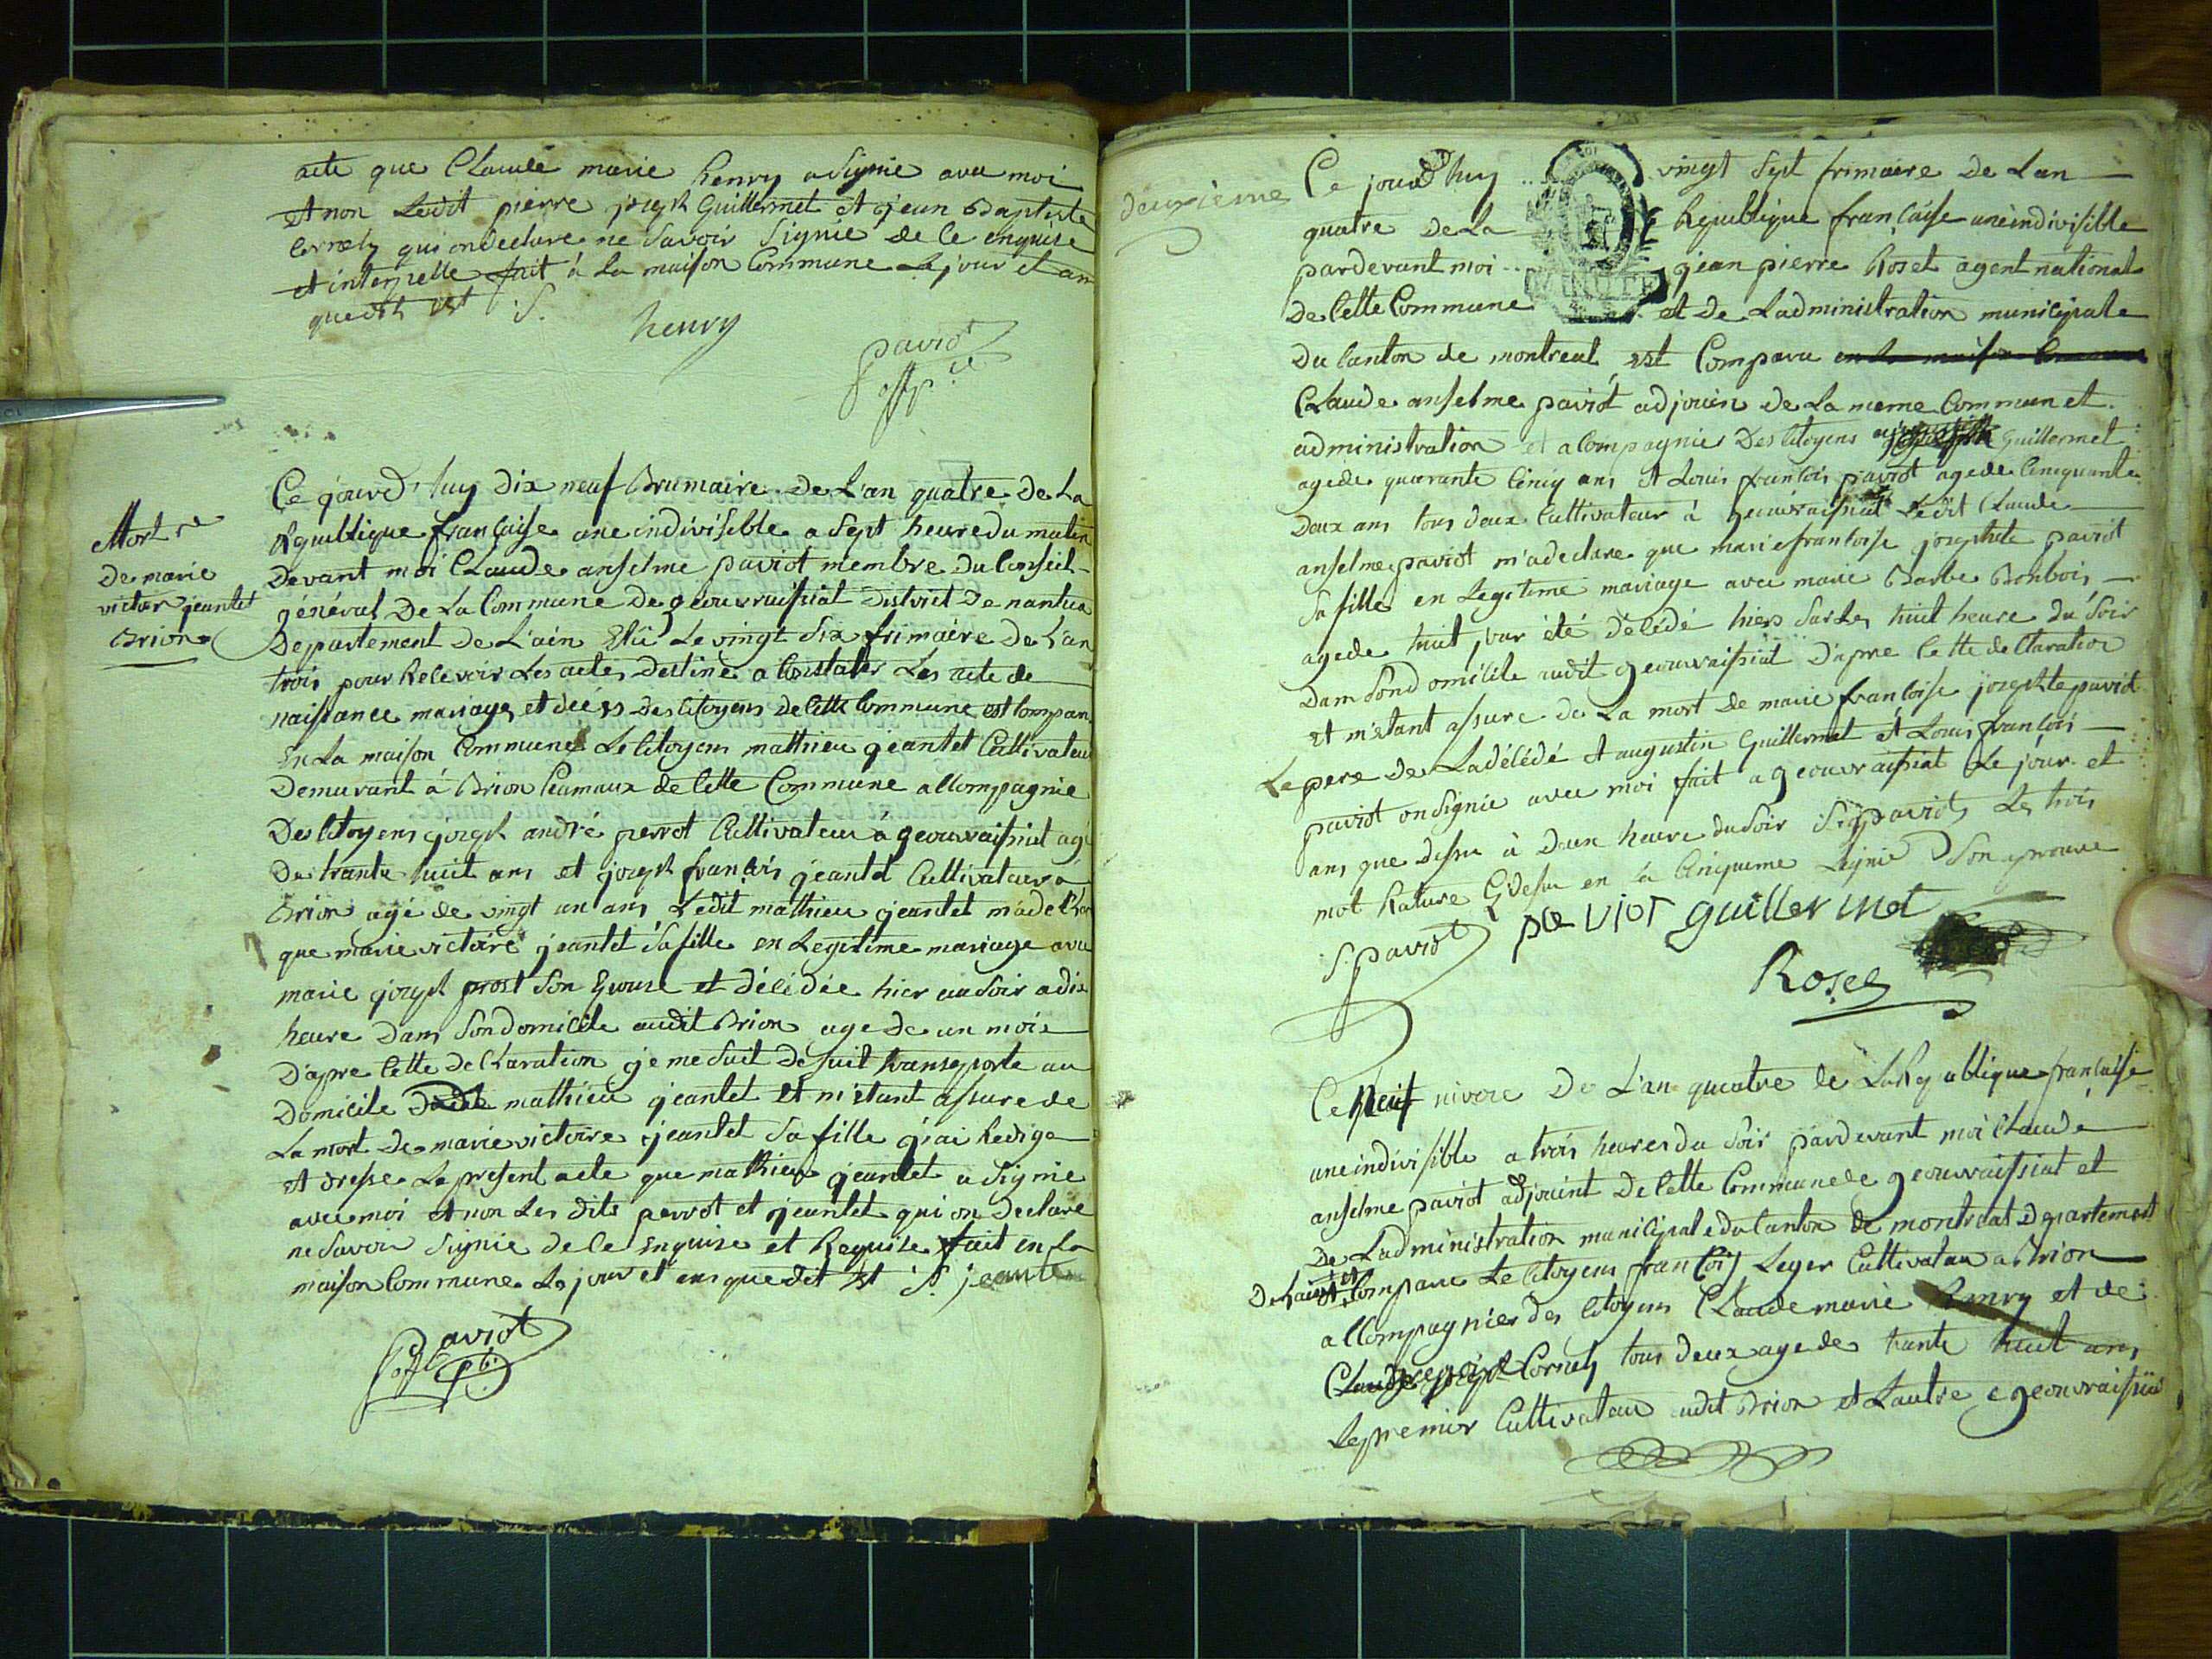 acte que Claude marie henry a Signié avec moi
et non Ledit pierre joseph Guillermet et jean Baptiste
Cornely qui on declare ne Savoir Signié de Ce enquise
et interpelle fait à La maison Commune Le jour et an
que dit est S. henry
paviot
offp.ce
Mort re
De marie
victoir jeantet
Brion
Ce jourd'huy dix neuf Brumaire De L'an quatre De La
Republique française une indivisible a Sept heure du matin
Devant moi Claude anselme paviot membre Du Conseil
général De La Commune De geouvraissiat District De nantua
Departement De L'ain Elu Le vingt Six frimaire De L'an
trois pour Recevoir Les actes Destiné a Constater Les acte de
naissance mariage et décès des Citoyens de Cette Commune est Comparu
En La maison Commune Le Citoyens mathieu jeantet Cultivateur
Demurant à Brion hamaux de Cette Commune accompagnie
Des Citoyens joseph andré perrot Cultivateur à geouvraissiat agé
De trante huit ans et joseph françois jeantet Cultivateur a
Brion agé de vingt un ans Ledit mathieu jeantet m'a declare
que marie victoire jeantet Sa fille en Legitime mariage avec
marie joseph prost Son Epouse et décédée hier au Soir a dix
heure Dans Son domicile audit Brion age de un mois
D'apre Cette declaration je me Suit De Suit transporte au
Domicile Dudit mathieu jeantet Et m'étant assure de
La mort de marie victoire jeantet Sa fille j'ai Redige
et dresse Le present acte que mathieu jeantet a Signie
avec moi et non Les dits perrot et jeantet qui on Declare
ne Savoir Signie de Ce Enquise et Requise fait en La
maison Commune Le jour et ans que dit Est S. jeantet
Paviot
offp.b.
deuxieme
Ce jourd'huy vingt Sept frimaire De Lan
quatre De La Republique française une indivisible
pardevant moi jean pierre Roset agent national
De Cette Commune MINUTE et De Ladministration municipale
Du Canton de montreal est Comparu en La maison Commune
Claude anselme paviot adjouin De La meme Commun et
administration et acompagnies Des Citoyens Guillermet
agede quarante Cinq ans et Louis francois paviot agede Cinquante
Deux ans tous deux Cultivateur à geouvraissiat Ledit Claude
anselme paviot m'a declare que marie francoise josephete paviot
Sa fille en Legitime mariage avec marie Barbe Bonbois
agede huit jour été décédé hiers Sur Les huit heure du Soir
Dam Son Domicile audit geouvraissiat D'apre Cette declaration
et m'étant assure de La mort de marie francoise josephte paviot
Le pere de La décédé et augustin Guillermet et Louis francois
paviot on Signie avec moi fait a geouvraissiat Le jour et
ans que dessu à Deux heure du Soir Sig paviot Les trois
mot Rature Cidesu en la Cinqueme Lignie Son aprouve
S. paviot paviot guillermet
Roset
Ce huit nivose De L'an quatre de La Republique française
une indivisible a trois heures du Soir pardevant moi Claude
anselme paviot adjouint De Cette Commune de geouvraissiat et
De Ladministration municipale du Canton de montreal Departement
De Lain est Comparu Le Citoyens francois Leger Cultivateur a Brion
accompagnies des Citoyens Claude marie henry et de
Claude joseph Cornely tous deux agede trante huit ans
Le premier Cultivateur audit Brion et Lautre a geouvraissiat